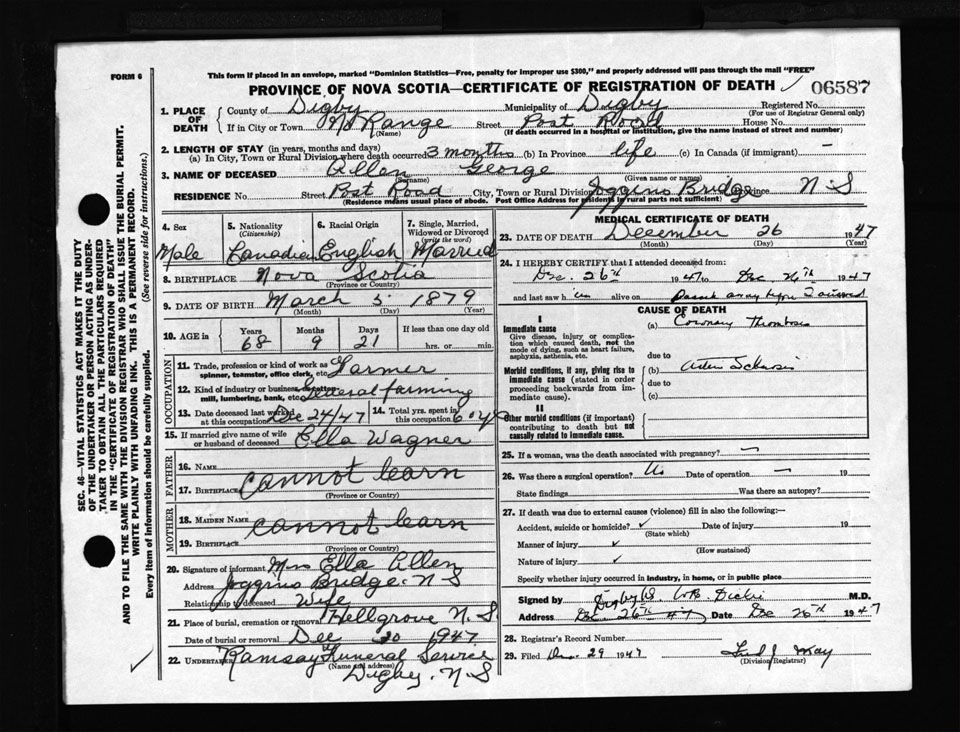 FORM 6
This form if placed in an envelope, marked "Dominion Statistics—Free, penalty for improper use $300," and properly addressed will pass through the mail "FREE"
PROVINCE OF NOVA SCOTIA—CERTIFICATE OF REGISTRATION OF DEATH ✓ 06587
1. PLACE OF DEATH County of Digby Municipality of Digby Registered No.
(For use of Registrar General only)
If in City or Town No Range Street Post Road House No.
(Name) (If death occurred in a hospital or institution, give the name instead of street and number)
2. LENGTH OF STAY (in years, months and days)
(a) In City, Town or Rural Division where death occurred 3 months (b) In Province life (c) In Canada (if immigrant) —
3. NAME OF DECEASED Allen George
(Surname) (Given name or names)
RESIDENCE No. Street Post Road City, Town or Rural Division Joggins Bridge Province N-S
(Residence means usual place of abode. Post Office Address for residents in rural parts not sufficient)
4. Sex Male
5. Nationality (Citizenship) Canadian
6. Racial Origin English
7. Single, Married, Widowed or Divorced (write the word) Married
8. BIRTHPLACE Nova Scotia
(Province or Country)
9. DATE OF BIRTH March 5 1879
(Month) (Day) (Year)
10. AGE in Years 68 Months 9 Days 21 If less than one day old hrs. or min.
OCCUPATION
11. Trade, profession or kind of work as spinner, teamster, office clerk, etc. Farmer
12. Kind of industry or business, as cotton-mill, lumbering, bank, etc. General farming
13. Date deceased last worked at this occupation Dec 24/47
14. Total yrs. spent in this occupation 60 yrs
15. If married give name of wife or husband of deceased Ella Wagner
FATHER
16. Name cannot learn
17. Birthplace
(Province or Country)
MOTHER
18. Maiden Name cannot learn
19. Birthplace
(Province or Country)
20. Signature of informant Mrs Ella Allen
Address Joggins Bridge. N-S
Relationship to deceased Wife
21. Place of burial, cremation or removal Hellgrove N.S.
Date of burial or removal Dec 1947
22. Undertaker Ramsay Funeral Service
(Name and address)
Digby. N-S
MEDICAL CERTIFICATE OF DEATH
23. DATE OF DEATH December 26 1947
(Month) (Day) (Year)
24. I HEREBY CERTIFY that I attended deceased from
Dec. 26th 1947 to Dec 26th 1947
and last saw h im alive on
CAUSE OF DEATH
I
Immediate cause
Give disease, injury or complication which caused death, not the mode of dying, such as heart failure, asphyxia, asthenia, etc.
(a) Coronary Thrombosis
due to
Morbid conditions, if any, giving rise to immediate cause (stated in order proceeding backwards from immediate cause).
(b) Arterio Sclerosis
due to
(c)
II
Other morbid conditions (if important) contributing to death but not causally related to immediate cause.
25. If a woman, was the death associated with pregnancy? —
26. Was there a surgical operation? No Date of operation — 19
State findings Was there an autopsy?
27. If death was due to external causes (violence) fill in also the following:—
Accident, suicide or homicide? ✓ Date of injury 19
(State which)
Manner of injury ✓
(How sustained)
Nature of injury ✓
Specify whether injury occurred in industry, in home, or in public place
Signed by M.D.
Address Dec. 26th 47 Date Dec 26th 1947
28. Registrar's Record Number
29. Filed Dec 29 1947 Fred J May
(Division Registrar)
SEC. 46—VITAL STATISTICS ACT MAKES IT THE DUTY
OF THE UNDERTAKER OR PERSON ACTING AS UNDERTAKER TO OBTAIN ALL THE PARTICULARS REQUIRED
IN THE "CERTIFICATE OF REGISTRATION OF DEATH"
AND TO FILE THE SAME WITH THE DIVISION REGISTRAR WHO SHALL ISSUE THE BURIAL PERMIT.
WRITE PLAINLY WITH UNFADING INK. THIS IS A PERMANENT RECORD.
Every item of information should be carefully supplied. (See reverse side for instructions.)